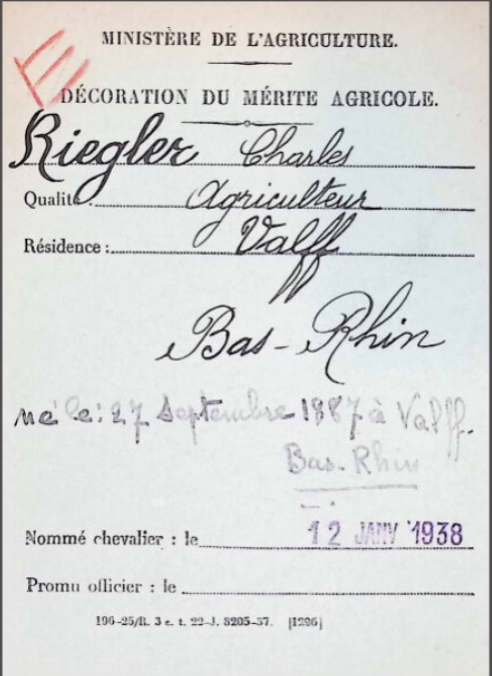 MINISTÈRE DE L'AGRICULTURE.
DÉCORATION DU MÉRITE AGRICOLE.
Riegler Charles
Qualité : Agriculteur
Résidence : Valff
Bas-Rhin
né le : 27 septembre 1887 à Valff.
Bas-Rhin
Nommé chevalier : le 12 JANV 1938
Promu officier : le
196-25/R. 3 e. t. 22-J. 8205-37. [1296]